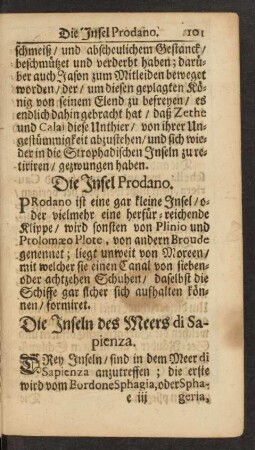 Die Insel Prodano. 101
schmeiß/ und abscheulichem Gestanck/
beschmützet und verderbt haben; darü-
ber auch Jason zum Mitleiden beweget
worden/ der/ um diesen geplagten Kö-
nig von seinem Elend zu befreyen/ es
endlich dahin gebracht hat/ daß Zethe
und Calai diese Unthier/ von ihrer Un-
gestümmigkeit abzustehen/ und sich wie-
der in die Strophadischen Inseln zu re-
tiriren/ gezwungen haben.
Die Insel Prodano.
PRodano ist eine gar kleine Insel/ o-
der vielmehr eine herfür-reichende
Klippe/ wird sonsten von Plinio und
Ptolomæo Plote, von andern Broude
genennet; liegt unweit von Moreen/
mit welcher sie einen Canal von sieben-
oder achtzehen Schuhen/ daselbst die
Schiffe gar sicher sich aufhalten kön-
nen/ formiret.
Die Inseln des Meers di Sa-
pienza.
DRey Inseln/ sind in dem Meer di
Sapienza anzutreffen; die erste
wird vom Bordone Sphagia, oder Spha-
e iij geria,